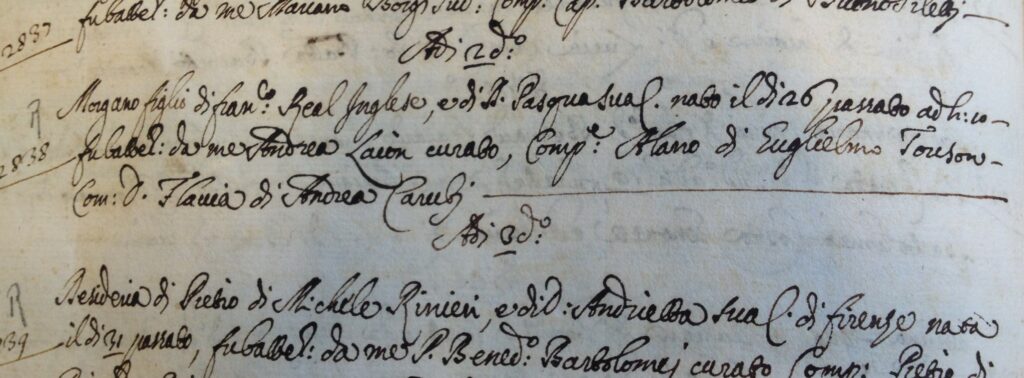 fu battez: da me Mariano Borgi sud: Comp: Cap. Bartolomeo di
2837
Adi 2 d.º
Morgano figlio di Fran.co Real Inglese, e di D. Pasqua sua C. nato il di 26 passato ad h: 10
R
2838
fu battez: da me Andrea Laion curato, Comp.e Alano di Guglielmo Toreson
Com: D. Flavia di Andrea Carubj
Adi 3 d.º
R
Benderia di Pietro di Michele Rinieri, e di D: Andrietta sua C. di Firenze nata
39
il di 31 passato, fu battez: da me P. Bened.º Bartolomej curato Comp: Pietro di